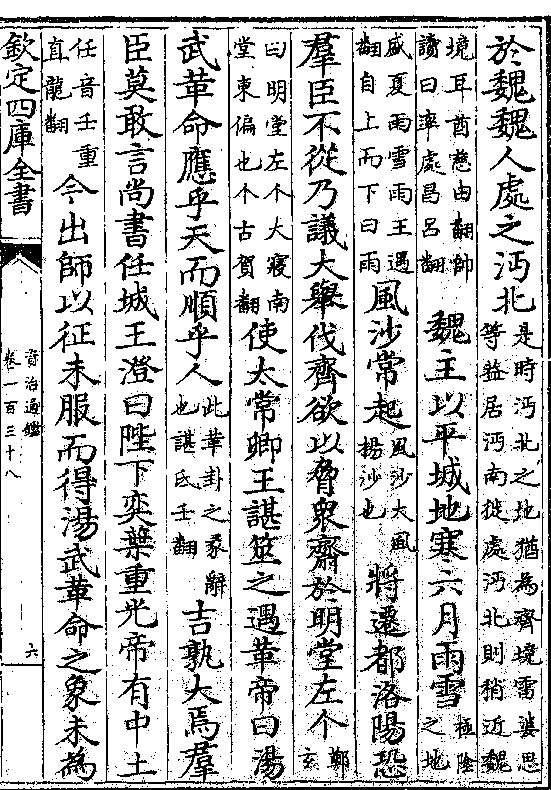 於魏魏人處之沔北是時沔北之地猶為齊境雷婆思等益居沔南徙處沔北則稍近魏
境耳酋慈由翻帥讀曰率處昌呂翻魏主以平城地寒六月雨雪極陰之地
盛夏雨雪雨王遇翻自上而下曰雨風沙常起風沙大風揚沙也將遷都洛陽恐
羣臣不從乃議大舉伐齊欲以脅衆齋於明堂左个鄭玄
曰明堂左个大寢南堂東偏也个古賀翻使太常卿王諶筮之遇革帝曰湯
武革命應乎天而順乎人此革卦之彖辭也諶氏壬翻吉孰大焉羣
臣莫敢言尚書任城王澄曰陛下奕葉重光帝有中土
任音壬重直龍翻今出師以征未服而得湯武革命之象未為
欽定四庫全書
資治通鑑
卷一百三十八
六